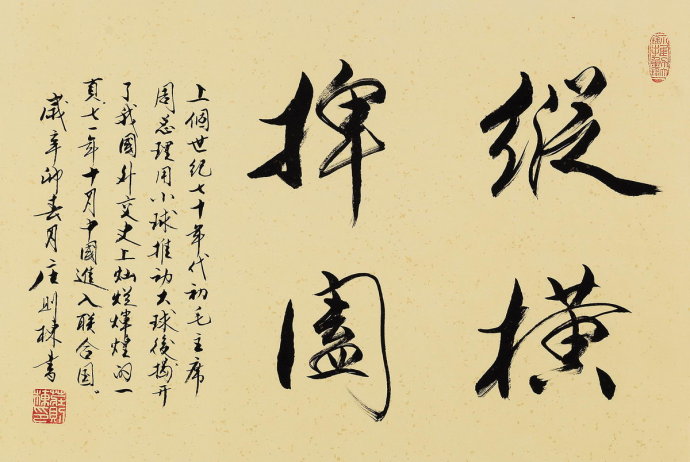 縱橫
捭闔
上個世紀七十年代初毛主席
周总理用小球推动大球後揭开
了我國外交史上灿爛煇煌的一
頁七一年十月中國進入联合国。
歲辛卯春月庄则棟書